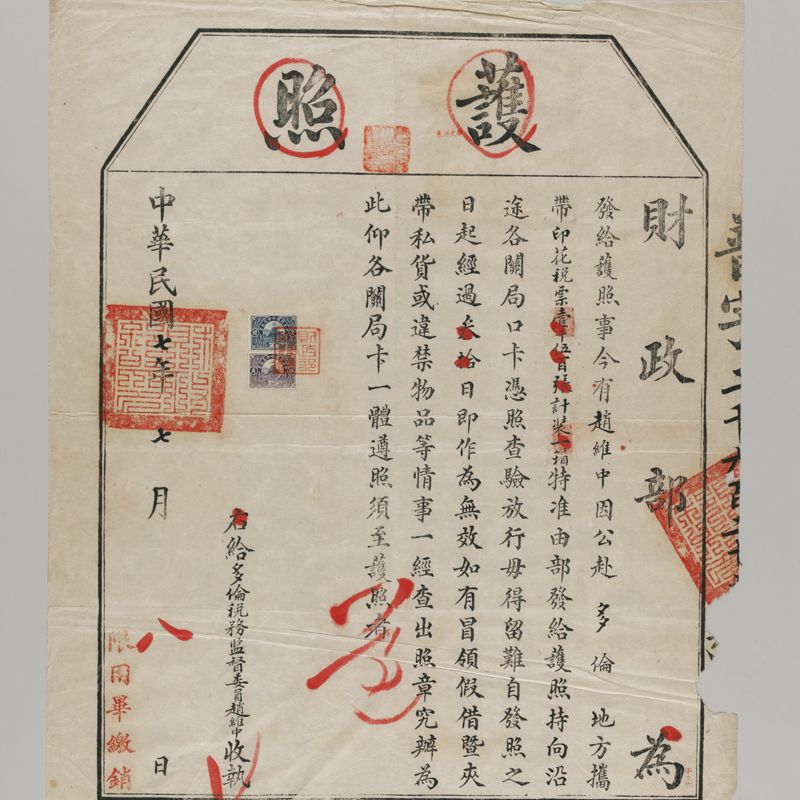 護照
財政部 為
發給護照事今有趙維中因公赴多倫地方攜
帶印花稅票壹千伍百張計裝一箱特准由部發給護照持向沿
途各關局口卡憑照查驗放行毋得留難自發照之
日起經過叁拾日即作為無效如有冒領假借暨夾
帶私貨或違禁物品等情事一經查出照章究辦為
此仰各關局卡一體遵照須至護照者
右給多倫稅務監督委員趙維中收執
中華民國七年七月八日
限用畢繳銷
財政部